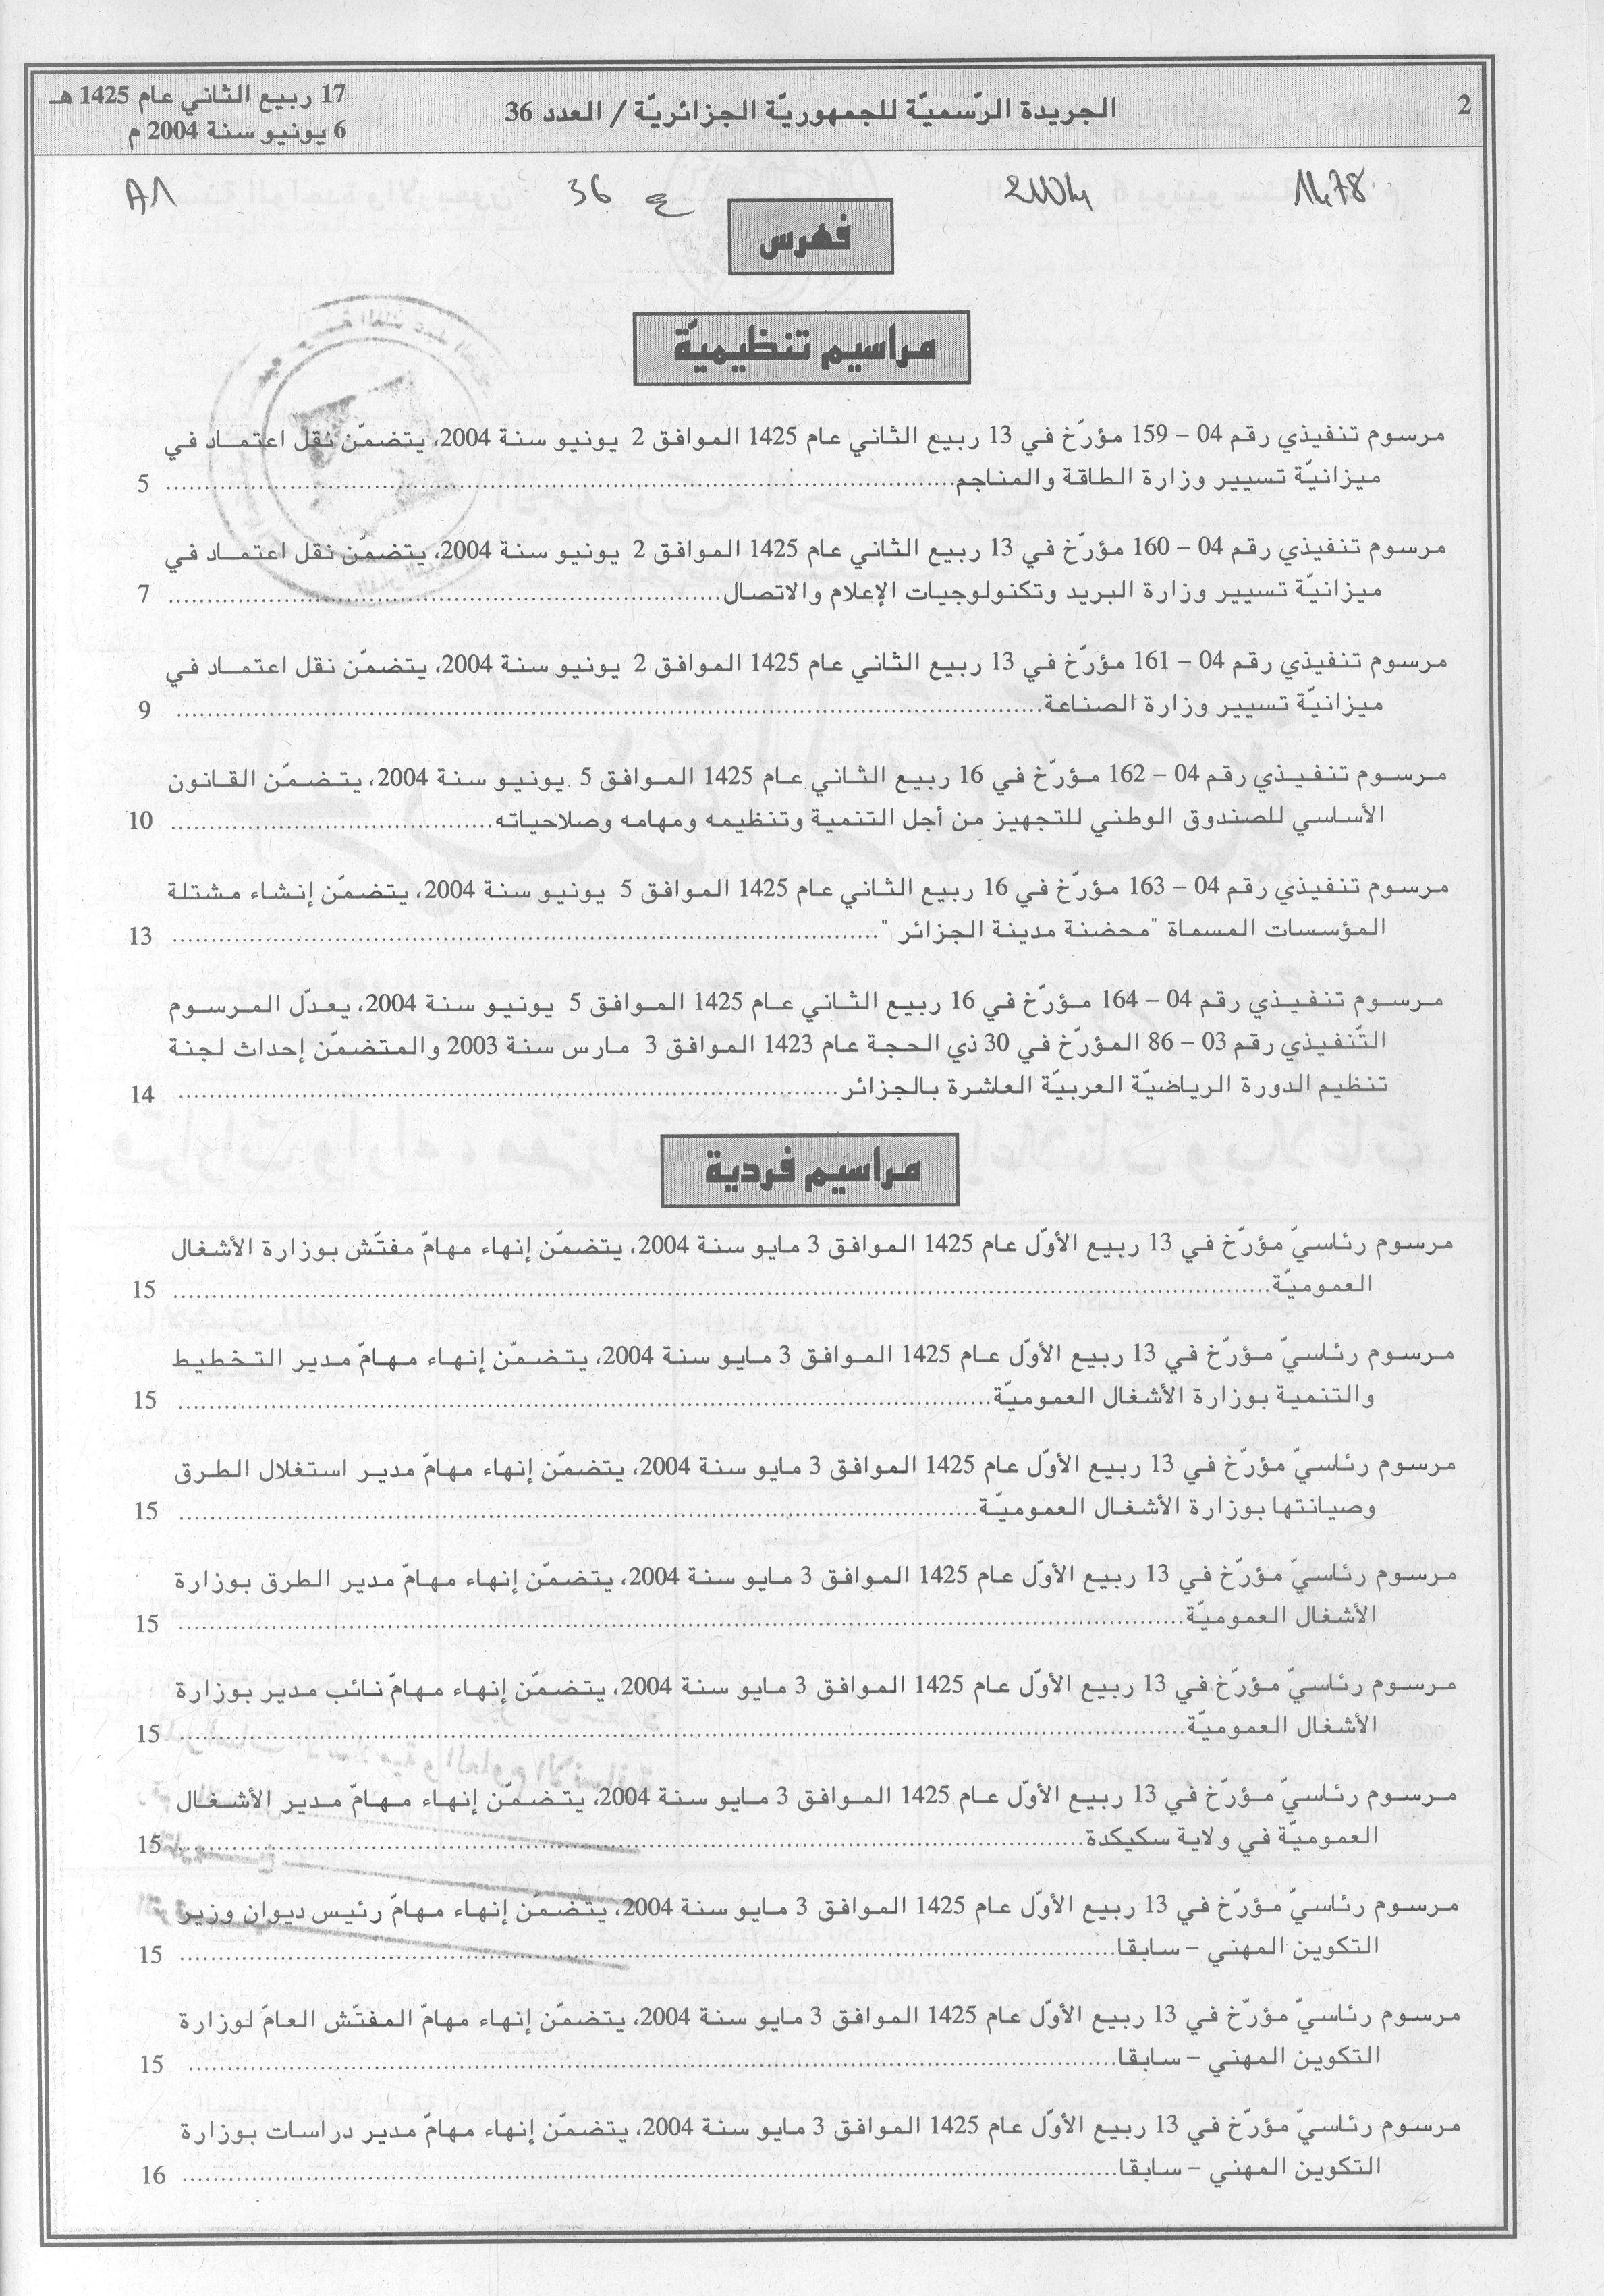 2
الجريدة الرّسميّة للجمهوريّة الجزائريّة / العدد 36
17 ربيع الثاني عام 1425 هـ
6 يونيو سنة 2004 م
1478
2004
ع 36
A1
فهرس
مراسيم تنظيميّة
مرسوم تنفيذي رقم 04 – 159 مؤرّخ في 13 ربيع الثاني عام 1425 الموافق 2 يونيو سنة 2004، يتضمّن نقل اعتمـاد في
ميزانيّة تسيير وزارة الطاقة والمناجم........ 5
مرسوم تنفيذي رقم 04 – 160 مؤرّخ في 13 ربيع الثاني عام 1425 الموافق 2 يونيو سنة 2004، يتضمّن نقل اعتمـاد في
ميزانيّة تسيير وزارة البريد وتكنولوجيات الإعلام والاتصال........ 7
مرسوم تنفيذي رقم 04 – 161 مؤرّخ في 13 ربيع الثاني عام 1425 الموافق 2 يونيو سنة 2004، يتضمّن نقل اعتمـاد في
ميزانيّة تسيير وزارة الصناعة........ 9
مرسوم تنفيذي رقم 04 – 162 مؤرّخ في 16 ربيع الثاني عام 1425 الموافق 5 يونيو سنة 2004، يتضمّن القانون
الأساسي للصندوق الوطني للتجهيز من أجل التنمية وتنظيمه ومهامه وصلاحياته........ 10
مرسوم تنفيذي رقم 04 – 163 مؤرّخ في 16 ربيع الثاني عام 1425 الموافق 5 يونيو سنة 2004، يتضمّن إنشاء مشتلة
المؤسسات المسماة "محضنة مدينة الجزائر "........ 13
مرسوم تنفيذي رقم 04 – 164 مؤرّخ في 16 ربيع الثاني عام 1425 الموافق 5 يونيو سنة 2004، يعدّل المرسوم
التّنفيذي رقم 03 – 86 المؤرّخ في 30 ذي الحجة عام 1423 الموافق 3 مارس سنة 2003 والمتضمّن إحداث لجنة
تنظيم الدورة الرياضيّة العربيّة العاشرة بالجزائر........ 14
مراسيم فردية
مرسوم رئاسيّ مؤرّخ في 13 ربيع الأوّل عام 1425 الموافق 3 مايو سنة 2004، يتضمّن إنهاء مهامّ مفتّش بوزارة الأشغال
العموميّة........ 15
مرسوم رئاسيّ مؤرّخ في 13 ربيع الأوّل عام 1425 الموافق 3 مايو سنة 2004، يتضمّن إنهاء مهامّ مدير التخطيط
والتنمية بوزارة الأشغال العموميّة........ 15
مرسوم رئاسيّ مؤرّخ في 13 ربيع الأوّل عام 1425 الموافق 3 مايو سنة 2004، يتضمّن إنهاء مهامّ مدير استغلال الطرق
وصيانتها بوزارة الأشغال العموميّة........ 15
مرسوم رئاسيّ مؤرّخ في 13 ربيع الأوّل عام 1425 الموافق 3 مايو سنة 2004، يتضمّن إنهاء مهامّ مدير الطرق بوزارة
الأشغال العموميّة........ 15
مرسوم رئاسيّ مؤرّخ في 13 ربيع الأوّل عام 1425 الموافق 3 مايو سنة 2004، يتضمّن إنهاء مهامّ نائب مدير بوزارة
الأشغال العموميّة........ 15
مرسوم رئاسيّ مؤرّخ في 13 ربيع الأوّل عام 1425 الموافق 3 مايو سنة 2004، يتضمّن إنهاء مهامّ مدير الأشغال
العموميّة في ولاية سكيكدة........ 15
مرسوم رئاسيّ مؤرّخ في 13 ربيع الأوّل عام 1425 الموافق 3 مايو سنة 2004، يتضمّن إنهاء مهامّ رئيس ديوان وزير
التكوين المهني – سابقا........ 15
مرسوم رئاسيّ مؤرّخ في 13 ربيع الأوّل عام 1425 الموافق 3 مايو سنة 2004، يتضمّن إنهاء مهامّ المفتّش العامّ لوزارة
التكوين المهني – سابقا........ 15
مرسوم رئاسيّ مؤرّخ في 13 ربيع الأوّل عام 1425 الموافق 3 مايو سنة 2004، يتضمّن إنهاء مهامّ مدير دراسات بوزارة
التكوين المهني – سابقا........ 16